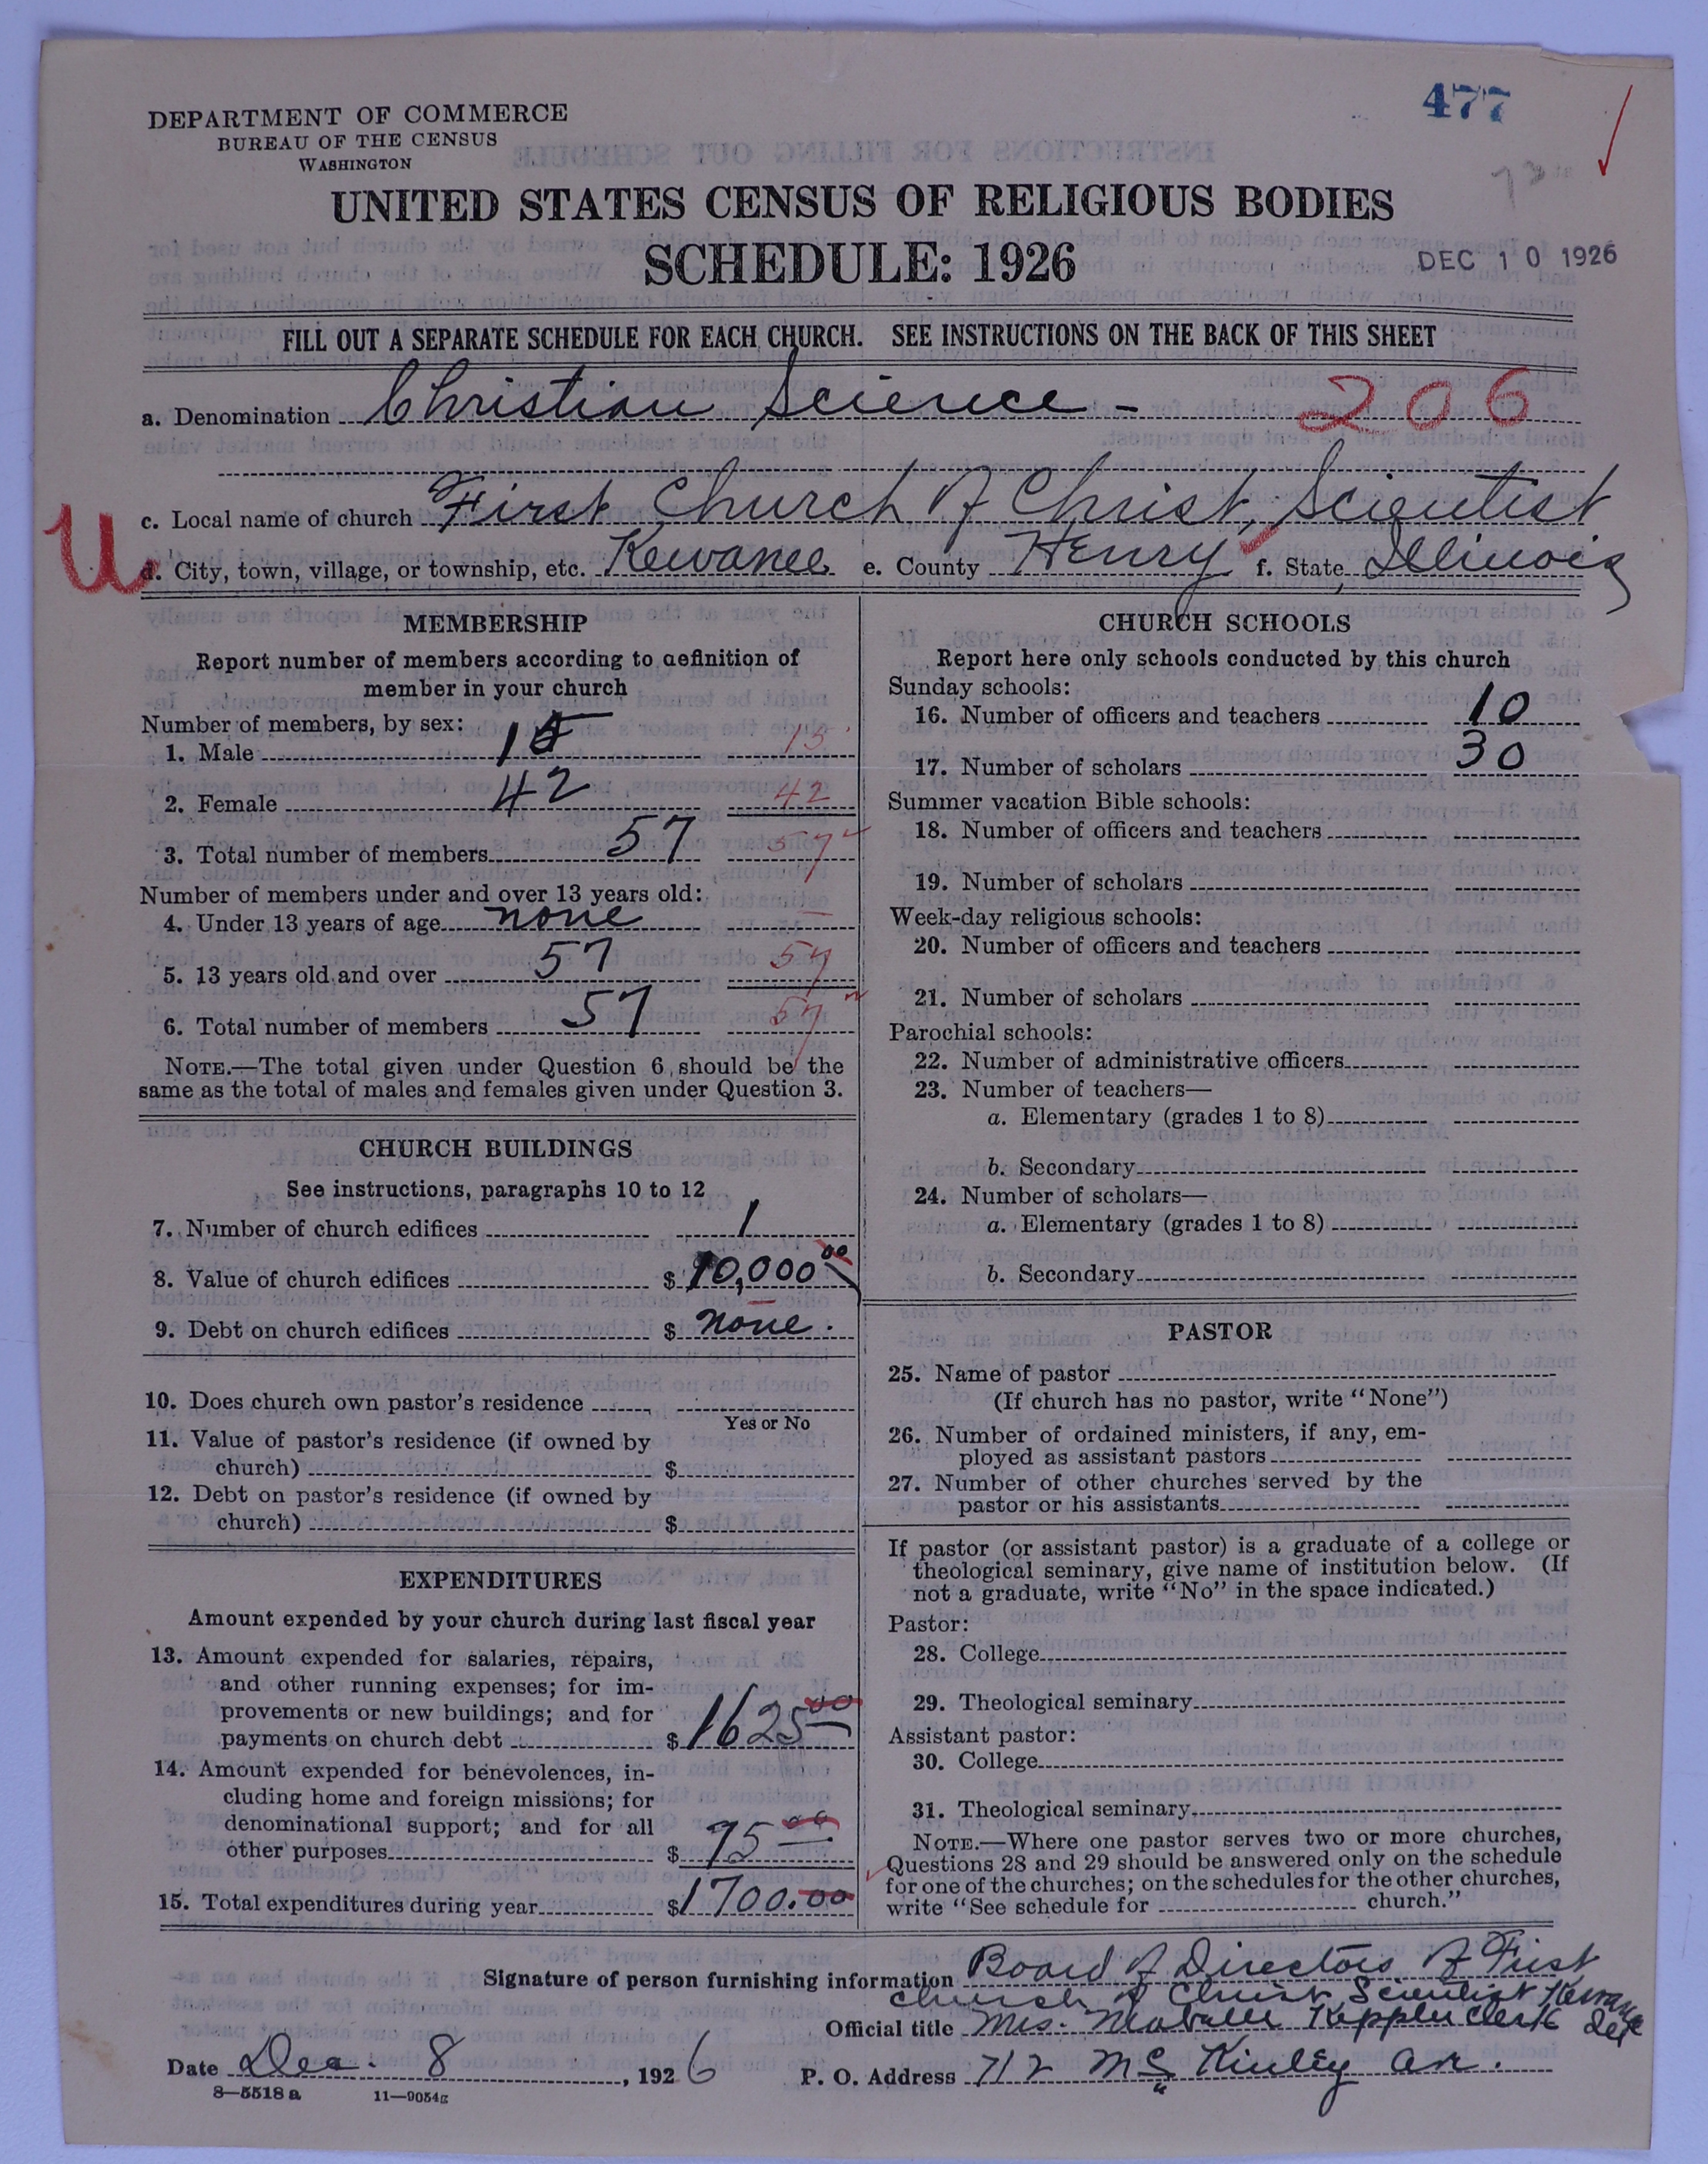 477
DEPARTMENT OF COMMERCE
BUREAU OF THE CENSUS
WASHINGTON
UNITED STATES CENSUS OF RELIGIOUS BODIES
SCHEDULE: 1926
DEC 10 1926
FILL OUT A SEPARATE SCHEDULE FOR EACH CHURCH. SEE INSTRUCTIONS ON THE BACK OF THIS SHEET
a. Denomination Christian Science - 206
c. Local name of church First Church of Christ, Scientist
U
d. City, town, village, or township, etc. Kewanee e. County Henry f. State Illinois
MEMBERSHIP
Report number of members according to definition of
member in your church
Number of members, by sex:
1. Male 15 15
2. Female 42 42
3. Total number of members 57 57
Number of members under and over 13 years old:
4. Under 13 years of age none –
5. 13 years old and over 57 57
6. Total number of members 57 57
NOTE.—The total given under Question 6 should be the
same as the total of males and females given under Question 3.
CHURCH BUILDINGS
See instructions, paragraphs 10 to 12
7. Number of church edifices 1
8. Value of church edifices $ 10,000 00
9. Debt on church edifices $ none.
10. Does church own pastor's residence
Yes or No
11. Value of pastor's residence (if owned by
church) $
12. Debt on pastor's residence (if owned by
church) $
EXPENDITURES
Amount expended by your church during last fiscal year
13. Amount expended for salaries, repairs,
and other running expenses; for im-
provements or new buildings; and for
payments on church debt $ 1625 00
14. Amount expended for benevolences, in-
cluding home and foreign missions; for
denominational support; and for all
other purposes $ 75 00
15. Total expenditures during year $ 1700.00
CHURCH SCHOOLS
Report here only schools conducted by this church
Sunday schools:
16. Number of officers and teachers 10
17. Number of scholars 30
Summer vacation Bible schools:
18. Number of officers and teachers
19. Number of scholars
Week-day religious schools:
20. Number of officers and teachers
21. Number of scholars
Parochial schools:
22. Number of administrative officers
23. Number of teachers—
a. Elementary (grades 1 to 8)
b. Secondary
24. Number of scholars—
a. Elementary (grades 1 to 8)
b. Secondary
PASTOR
25. Name of pastor
(If church has no pastor, write "None")
26. Number of ordained ministers, if any, em-
ployed as assistant pastors
27. Number of other churches served by the
pastor or his assistants
If pastor (or assistant pastor) is a graduate of a college or
theological seminary, give name of institution below. (If
not a graduate, write "No" in the space indicated.)
Pastor:
28. College
29. Theological seminary
Assistant pastor:
30. College
31. Theological seminary
NOTE.—Where one pastor serves two or more churches,
Questions 28 and 29 should be answered only on the schedule
for one of the churches; on the schedules for the other churches,
write "See schedule for church."
Signature of person furnishing information Board of Directors of First
Church of Christ Scientist Kewanee
Official title Mrs. Keppler Clerk
Date Dec. 8, 1926 P. O. Address 712 McKinley Av.
8—5518 a 11—9054